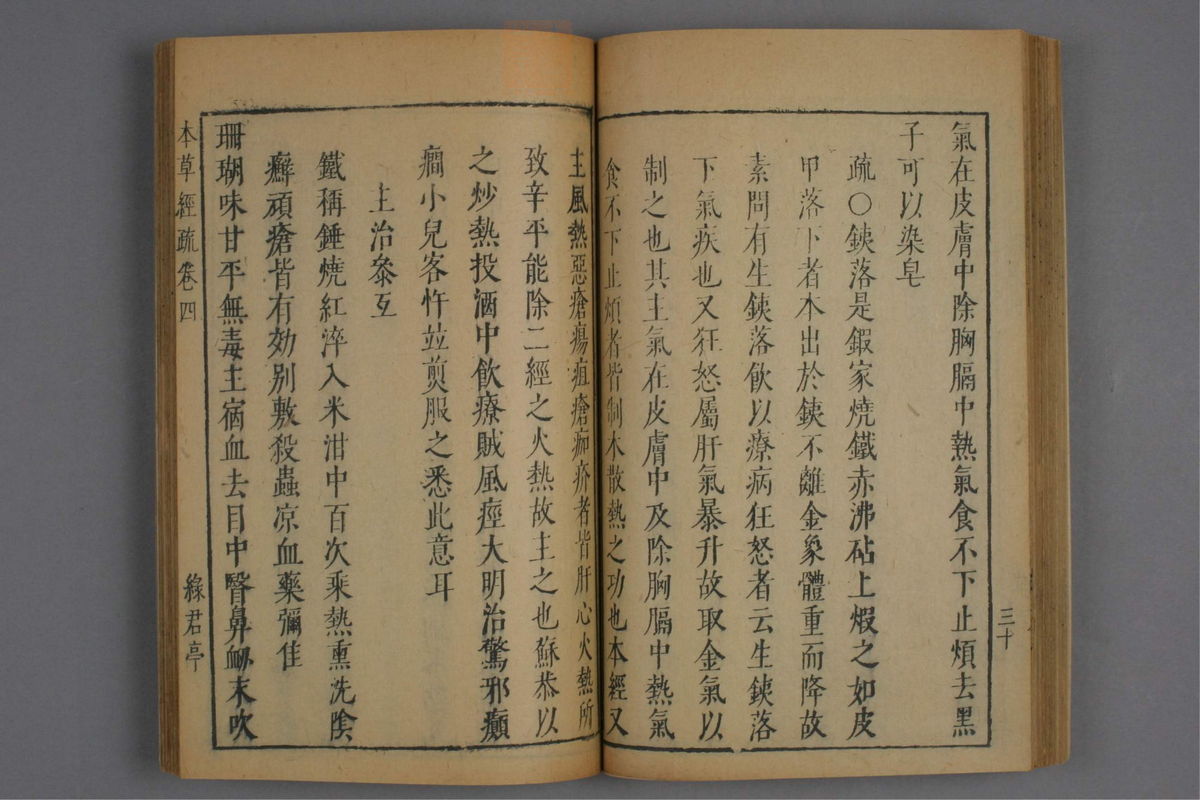 氣在皮膚中除胸膈中熱氣食不下止煩去黑
子可以染皂
疏○鉄落是鍜家燒鐵赤沸砧上煆之如皮
甲落下者本出於鉄不離金象體重而降故
素問有生鉄落飲以療病狂怒者云生鉄落
下氣疾也又狂怒屬肝氣暴升故取金氣以
制之也其主氣在皮膚中及除胸膈中熱氣
食不下止煩者皆制木散熱之功也本經又
三十
主風熱惡瘡瘍疽瘡痂疥者皆肝心火熱所
致辛平能除二經之火熱故主之也蘇恭以
之炒熱投酒中飲療賊風痙大明治驚邪癲
癎小兒客忤並煎服之悉此意耳
主治叅互
鐵稱錘燒紅淬入米泔中百次乘熱熏洗陰
癬頑瘡皆有効别敷殺蟲凉血藥彌佳
珊瑚味甘平無毒主宿血去目中瞖鼻衂末吹
本草經疏卷四
綠君亭